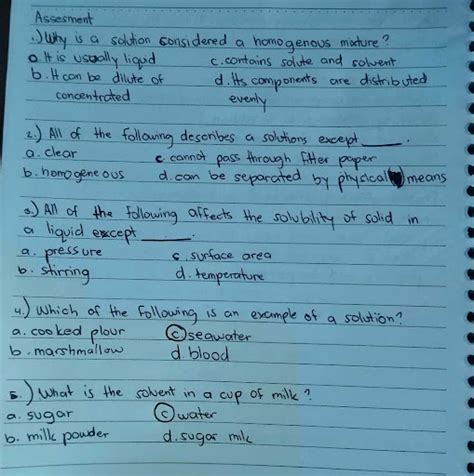 Assesment
1.) Why is a solution considered a homogenous mixture?
a. It is usually liquid c. contains solute and solvent
b. It can be dilute of d. its components are distributed
concentrated evenly
2.) All of the following describes a solutions except ____.
a. clear c. cannot pass through filter paper
b. homogeneous d. can be separated by physical means
3.) All of the following affects the solubility of solid in
a liquid except ____.
a. pressure c. surface area
b. stirring d. temperature
4.) Which of the following is an example of a solution?
a. cooked plour c) seawater
b. marshmallow d. blood
5.) What is the solvent in a cup of milk?
a. sugar c) water
b. milk powder d. sugar milk